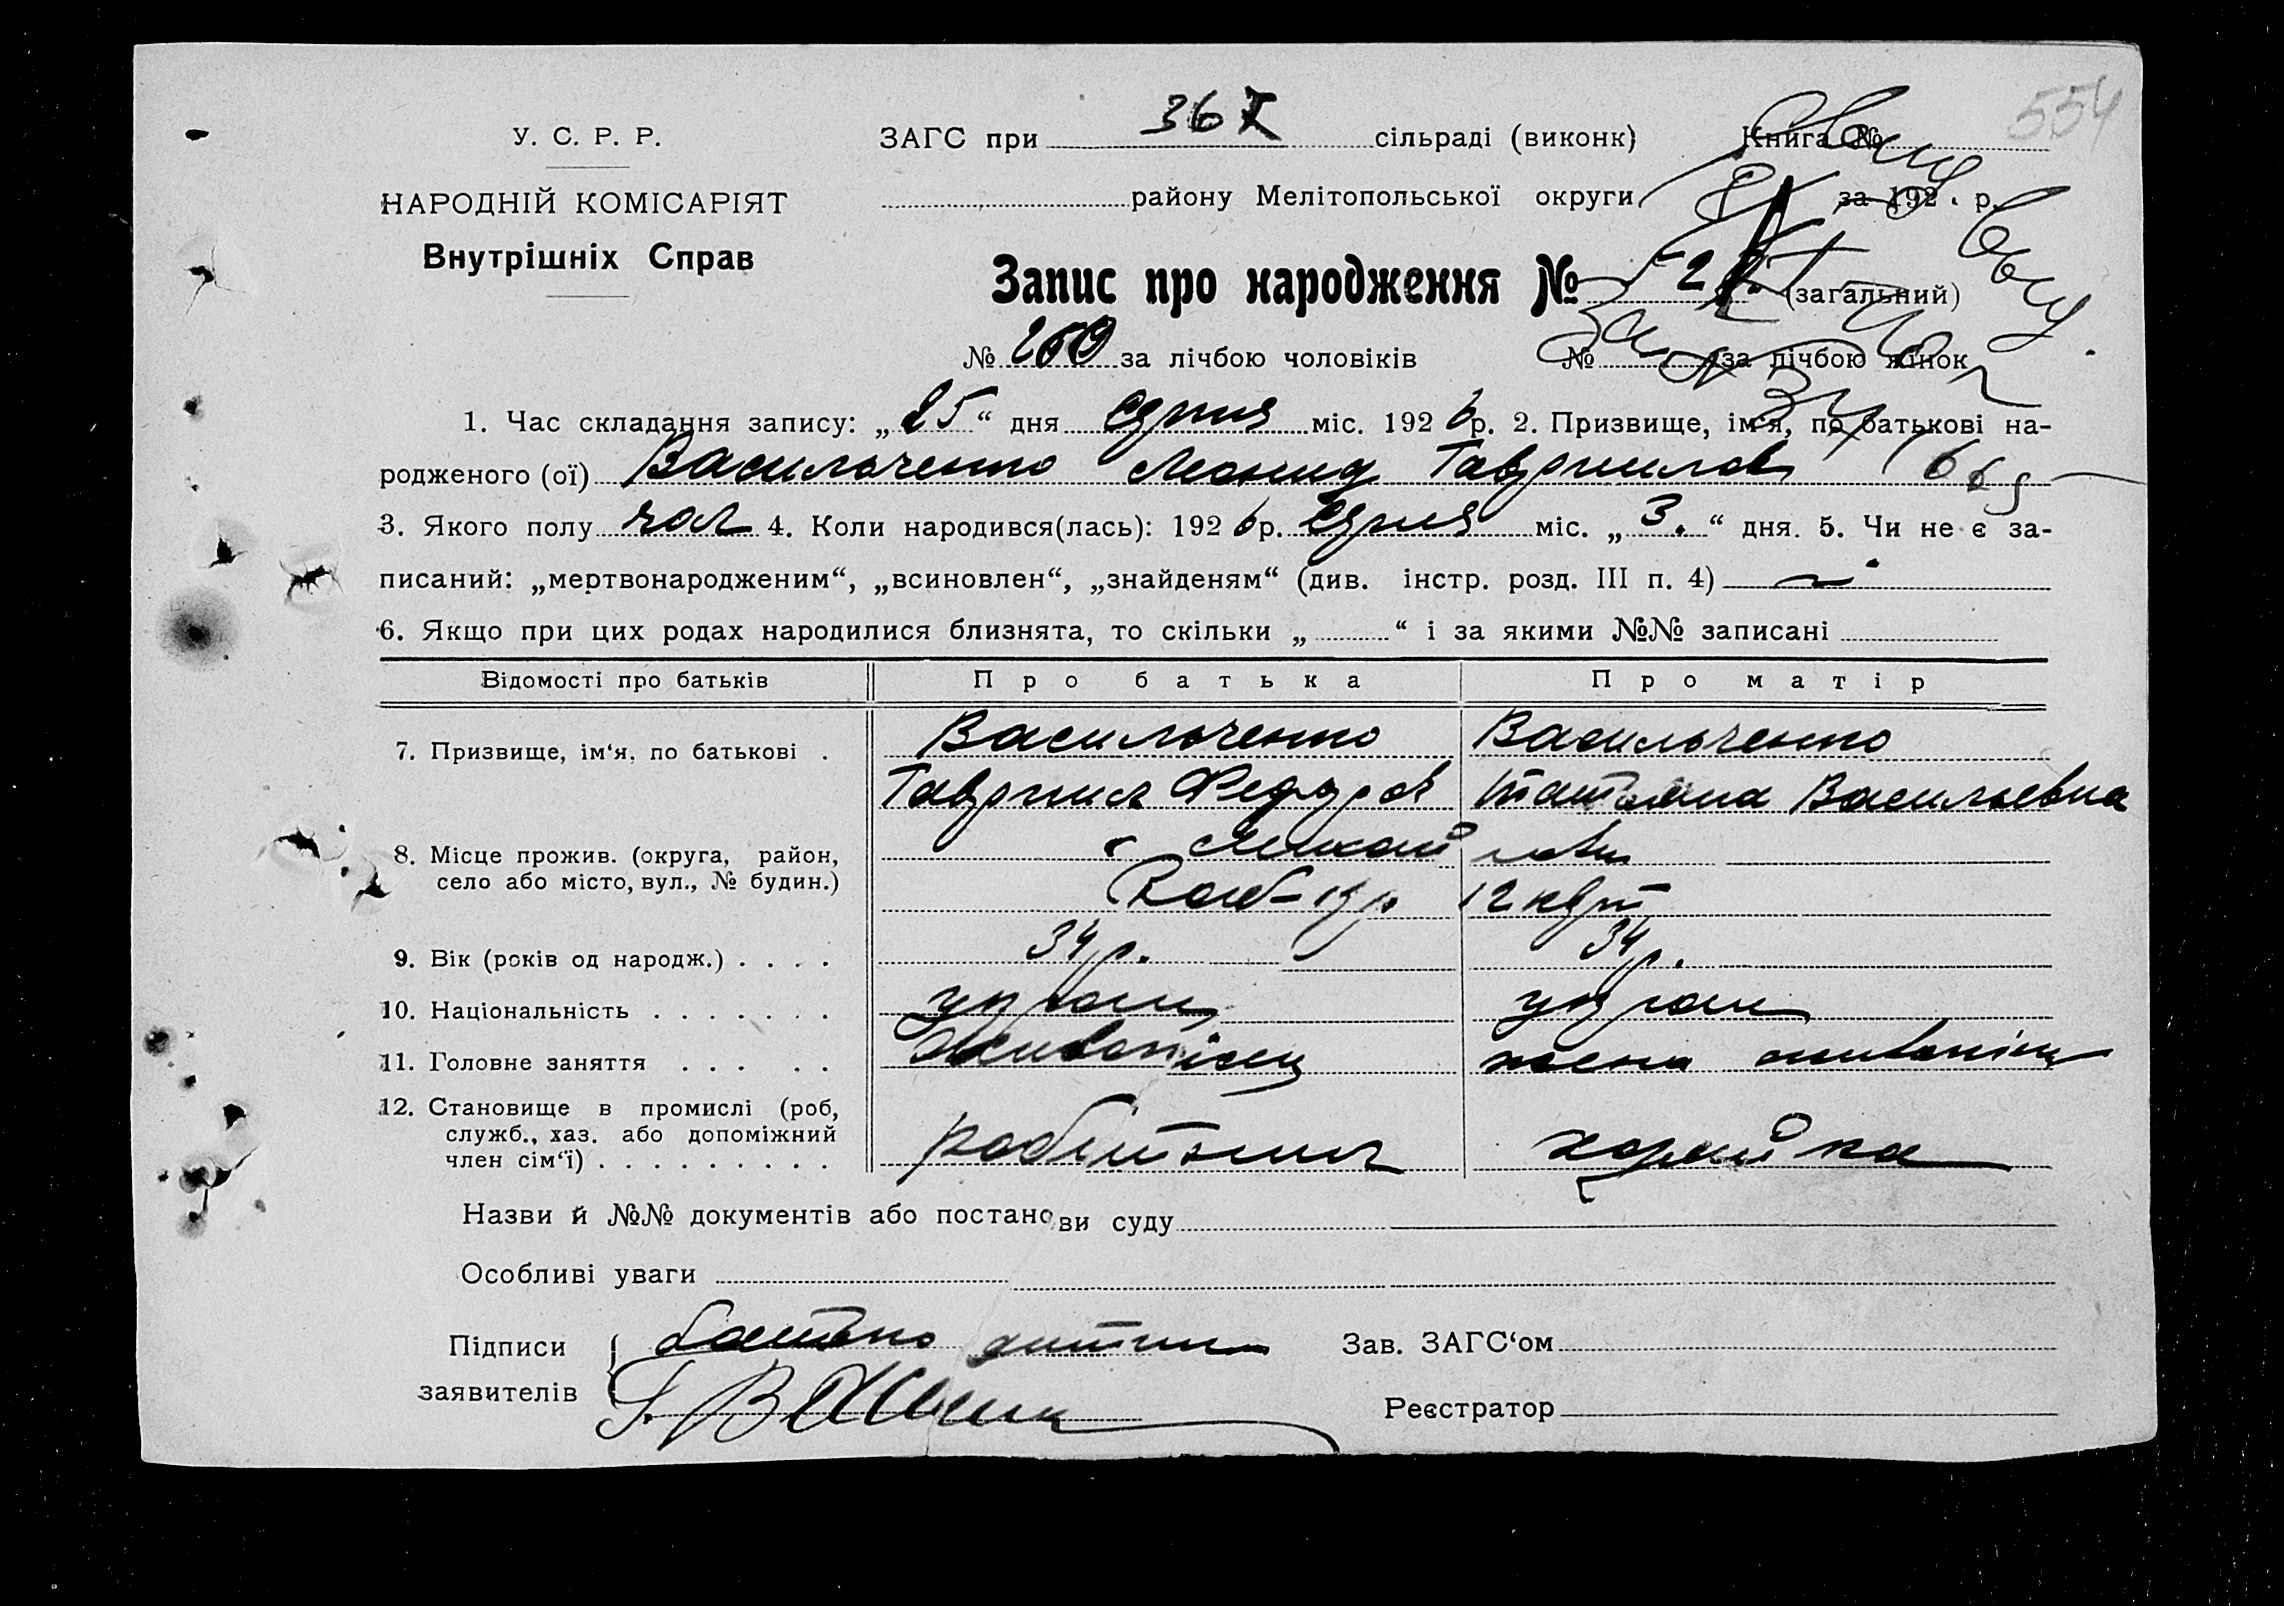 554
У. С. Р. Р.
ЗАГС при сільраді (виконк) Книга №
НАРОДНІЙ КОМІСАРІЯТ
району Мелітопольської округи за 192 р.
Внутрішніх Справ
Запис про народження № (загальний)
№ за лічбою чоловіків № за лічбою жінок
1. Час складання запису: „25“ дня серпня міс. 1926р. 2. Призвище, ім'я, по батькові на-
родженого (ої) Васильченко Леонид Гавриилов
3. Якого полу чол 4. Коли народився(лась): 1926р. серпня міс. „3.“ дня. 5. Чи не є за-
писаний: „мертвонародженим“, „всиновлен“, „знайденям“ (див. інстр. розд. III п. 4)
6. Якщо при цих родах народилися близнята, то скільки „ “ і за якими №№ записані
Відомості про батьків Про батька Про матір
7. Призвище, ім‘я, по батькові . Васильченко Васильченко
Гавриил Федоров Татьяна Васильевна
8. Місце прожив. (округа, район,
село або місто, вул., № будин.) 12
9. Вік (років од народж.) . . . . 34 р. 34 р.
10. Національність . . . . . . . украин украин
11. Головне заняття . . . . . живопісец жена живопісц
12. Становище в промислі (роб,
служб., хаз. або допоміжний
член сім‘ї) . . . . . . . . . робітник хозяйка
Назви й №№ документів або постанови суду
Особливі уваги
Підписи батько дитини Зав. ЗАГС‘ом
заявителів Реєстратор